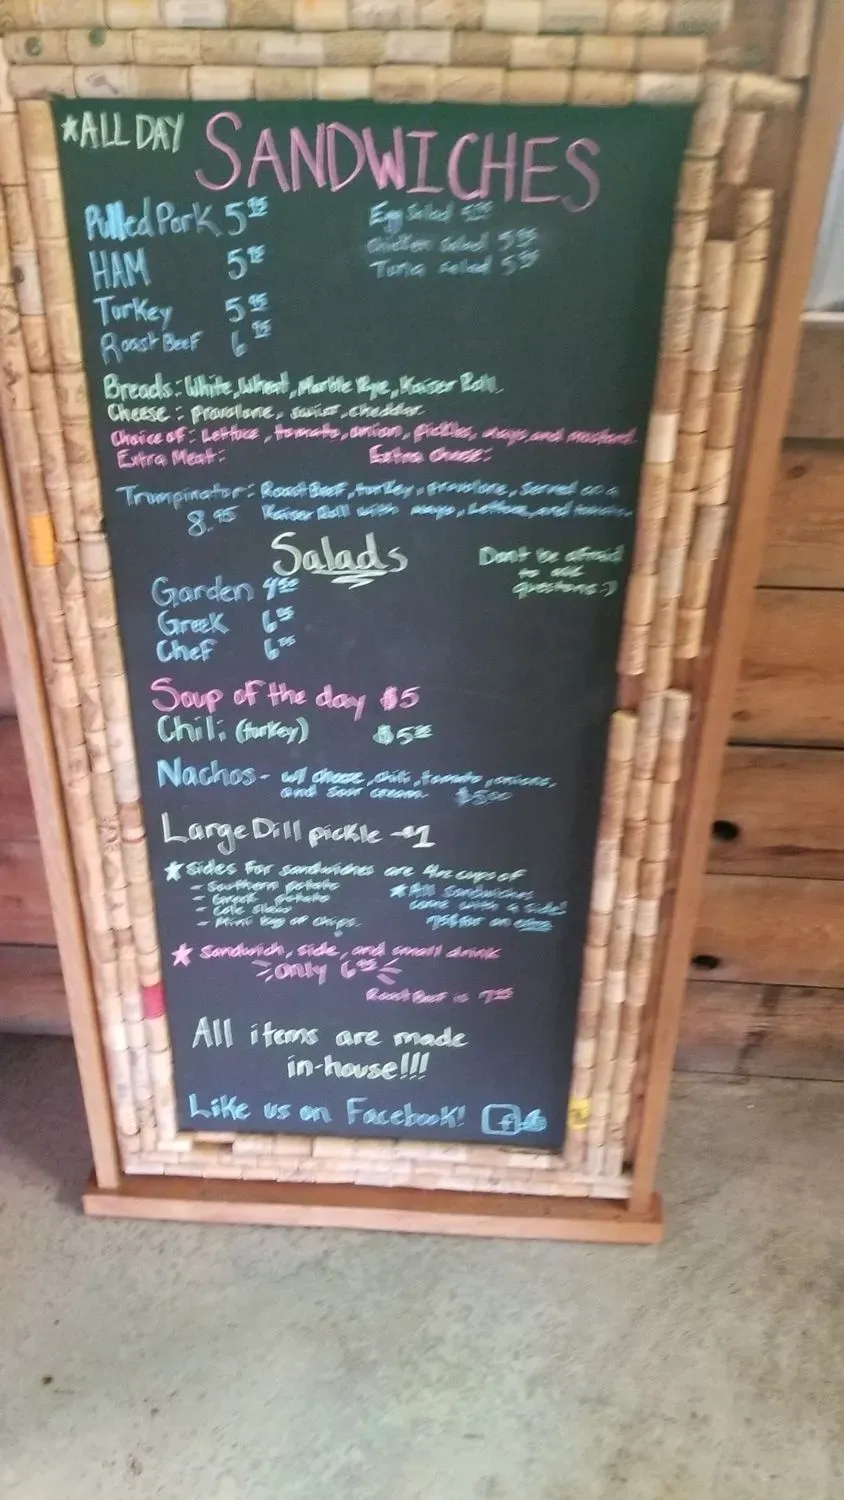 *ALL DAY SANDWICHES
Pulled Pork 5.95
HAM 5.95
Turkey 5.95
Roast Beef 6.95
Egg Salad
Chicken salad 5.95
Tuna salad 5.95
Breads: White, Wheat, Marble Rye, Kaiser Roll
Cheese: provolone, swiss, cheddar
Choice of: Lettuce, tomato, onion, pickles, mayo, and mustard
Extra Meat: Extra cheese:
Trumpinator: Roast Beef, turkey, provolone, served on a
8.95 Kaiser Roll with mayo, Lettuce, and tomato.
Salads
Don't be afraid
to ask
questions :)
Garden 4.50
Greek 6.95
Chef 6.95
Soup of the day $5
Chili (turkey) $5.00
Nachos - w/ cheese, chili, tomato, onions,
and sour cream $5.00
Large Dill pickle - $1
* Sides for sandwiches are 4oz cups of
- Southern potato
- Greek potato
- Cole Slaw
- Mini Bag of Chips.
* All Sandwiches
come with a side!
75¢ for an extra
* Sandwich, side, and small drink
only 6.95
Roast Beef is 7.95
All items are made
in-house!!!
Like us on Facebook! f